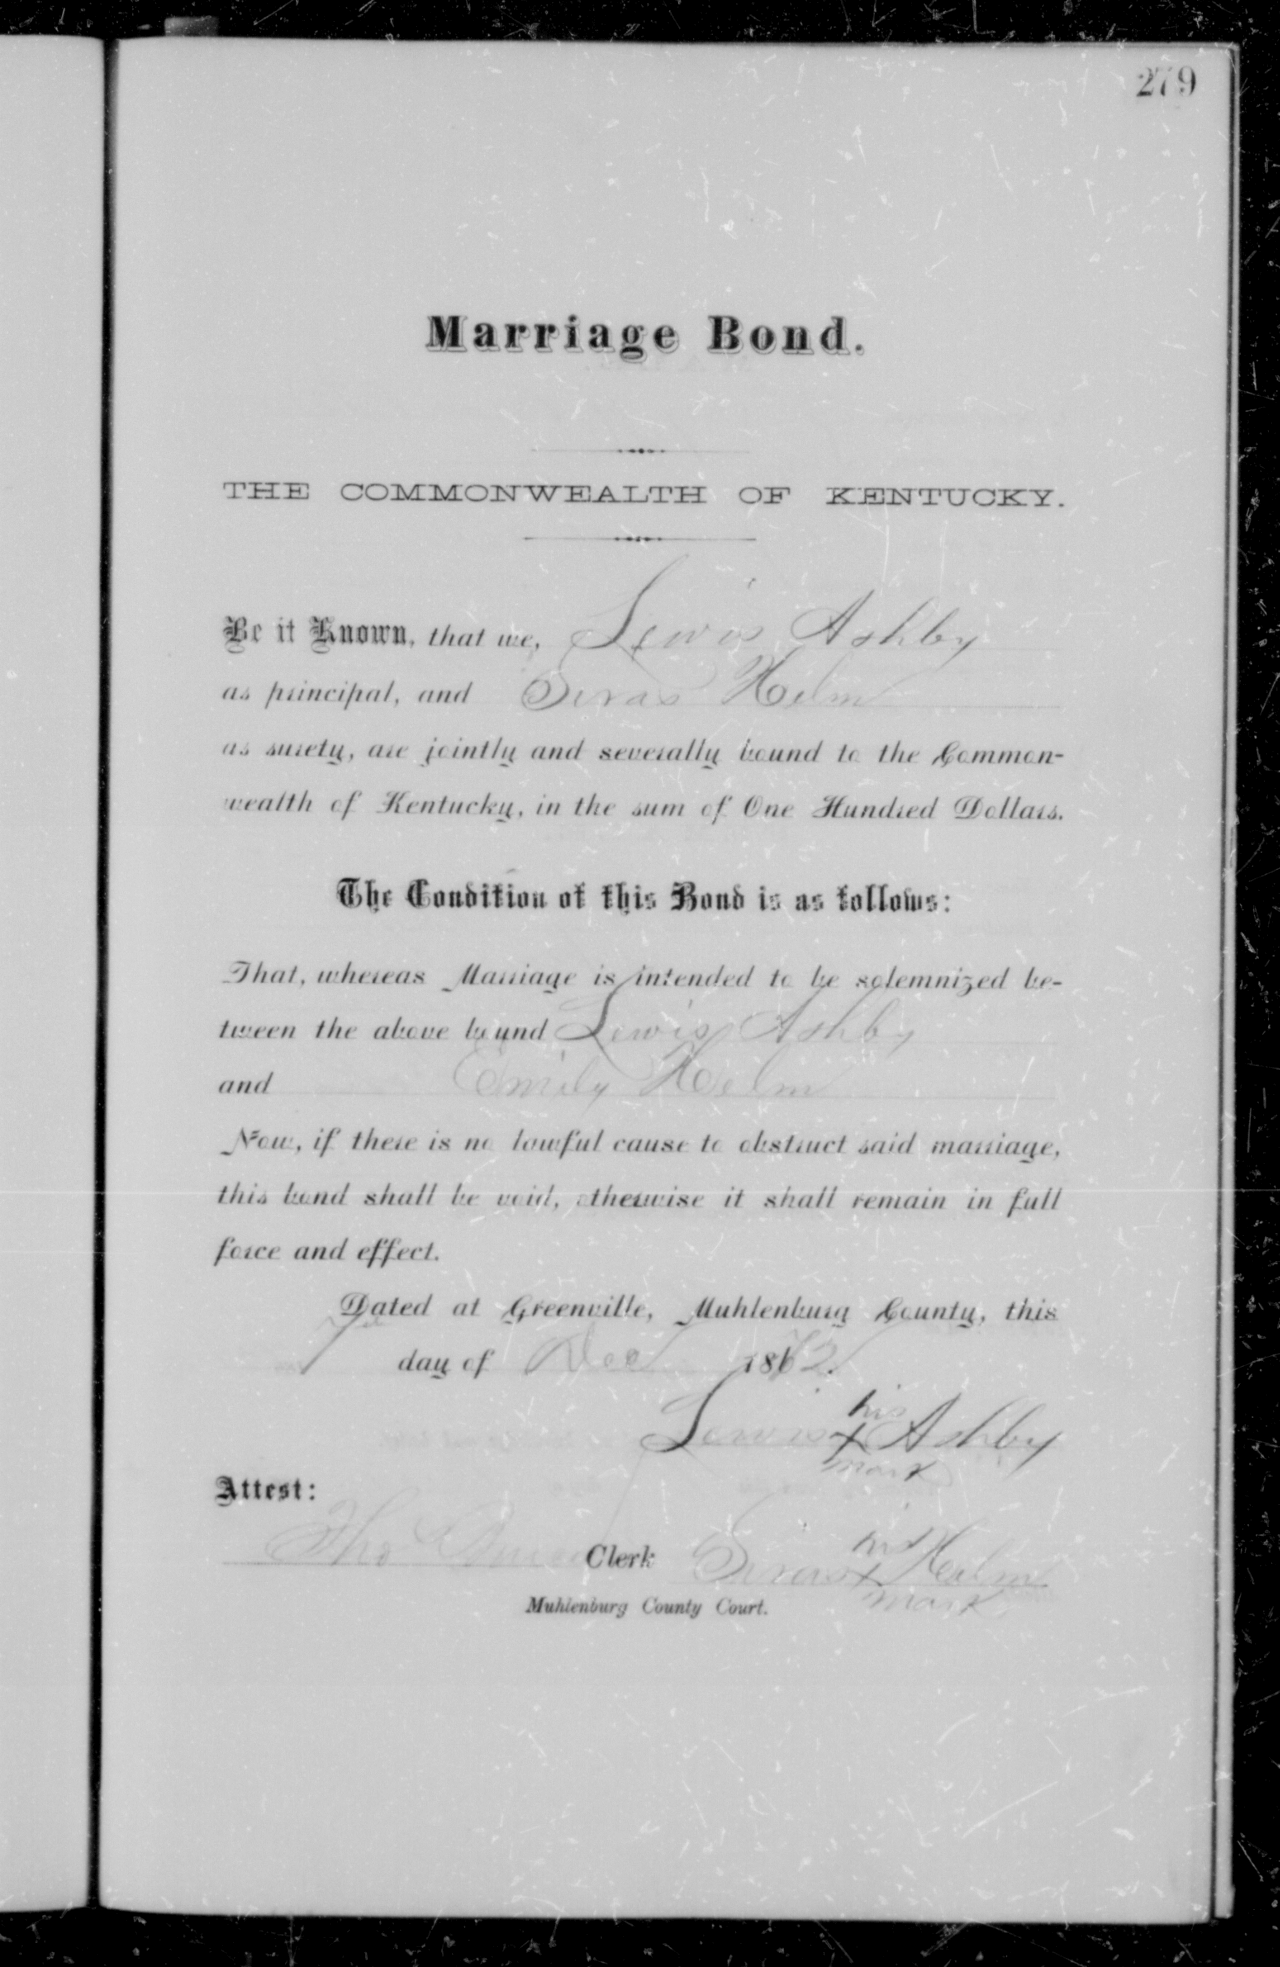 279
Marriage Bond.
THE COMMONWEALTH OF KENTUCKY.
Be it Known, that we, Lewis Ashby
as principal, and Helm
as surety, are jointly and severally bound to the Common-
wealth of Kentucky, in the sum of One Hundred Dollars.
The Condition of this Bond is as follows:
That, whereas Marriage is intended to be solemnized be-
tween the above bound Lewis Ashby
and Emily Helm
Now, if there is no lawful cause to obstruct said marriage,
this bond shall be void, otherwise it shall remain in full
force and effect.
Dated at Greenville, Muhlenburg County, this
7 day of Dec 1872.
his
Lewis x Ashby
mark
Attest:
his
Tho Clerk x Helm
mark
Muhlenburg County Court.